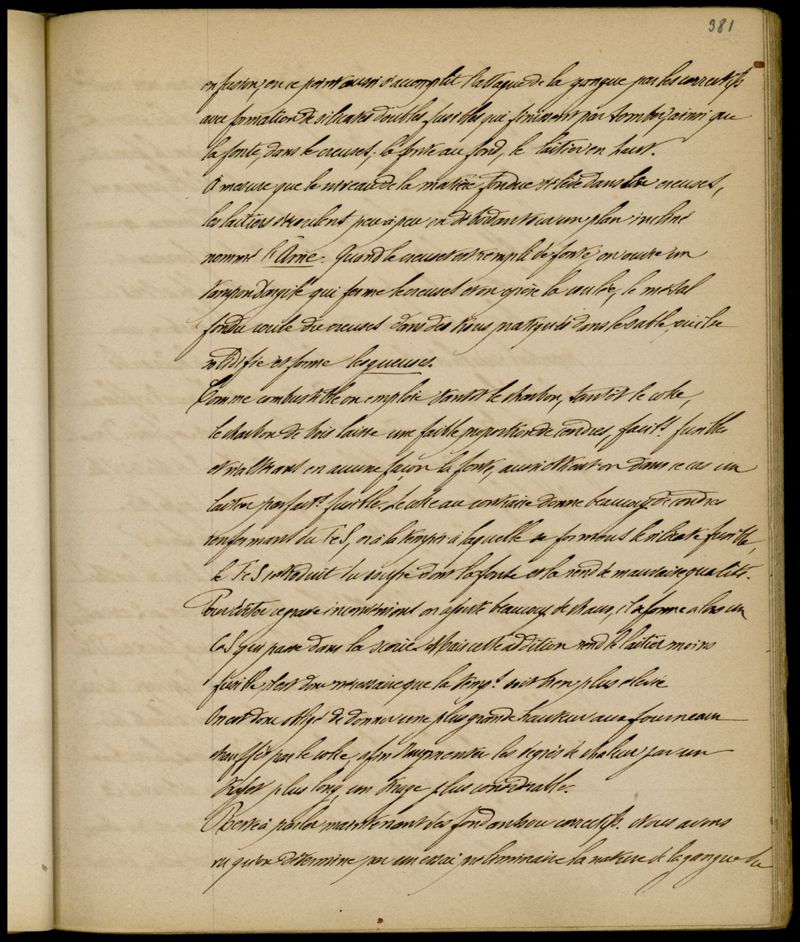 381
en fusion; en ce point aussi s'accomplit l'attaque de la gangue par les correctifs
avec formation de silicates doubles fusibles qui finissent par tomber, ainsi que
la fonte, dans le creuset; la fonte au fond, le laitier en haut.
A mesure que le niveau de la matière fondue s'élève dans le creuset,
les laitiers s'écoulent peu à peu en débordant sur un plan incliné
nommé la Dame. Quand le creuset est rempli de fonte, on ouvre un
tampon d'argile qui ferme le creuset et on opère la coulée, le métal
fondu coule du creuset dans des trous pratiqués dans le sable, où il se
solidifie et forme les gueuses.
Comme combustible on emploie tantôt le charbon, tantôt le coke,
le charbon de bois laisse une faible proportion de cendres, facilt. fusibles
et n'altérant en aucune façon la fonte, aussi obtient-on dans ce cas un
laitier parfait. fusible. Le coke au contraire donne beaucoup de cendres
renfermant du FeS, or à la tempér. à laquelle se forme le silicate fusible,
le FeS introduit du soufre dans la fonte et la rend de mauvaise qualité.
Pour éviter ce grave inconvénient on ajoute beaucoup de chaux, il se forme alors un
CaS qui passe dans la scorie. Mais cette addition rend le laitier moins
fusible, il est donc nécessaire que la temp. soit bien plus élevée
On est donc obligé de donner une plus grande hauteur aux fourneaux
chauffés par le coke, afin d'augmenter les degrés de chaleur par un
trajet plus long, un tirage plus considérable.
Reste à parler maintenant des fondants ou correctifs. Nous avons
vu qu'on détermine par un essai préliminaire la nature de la gangue du